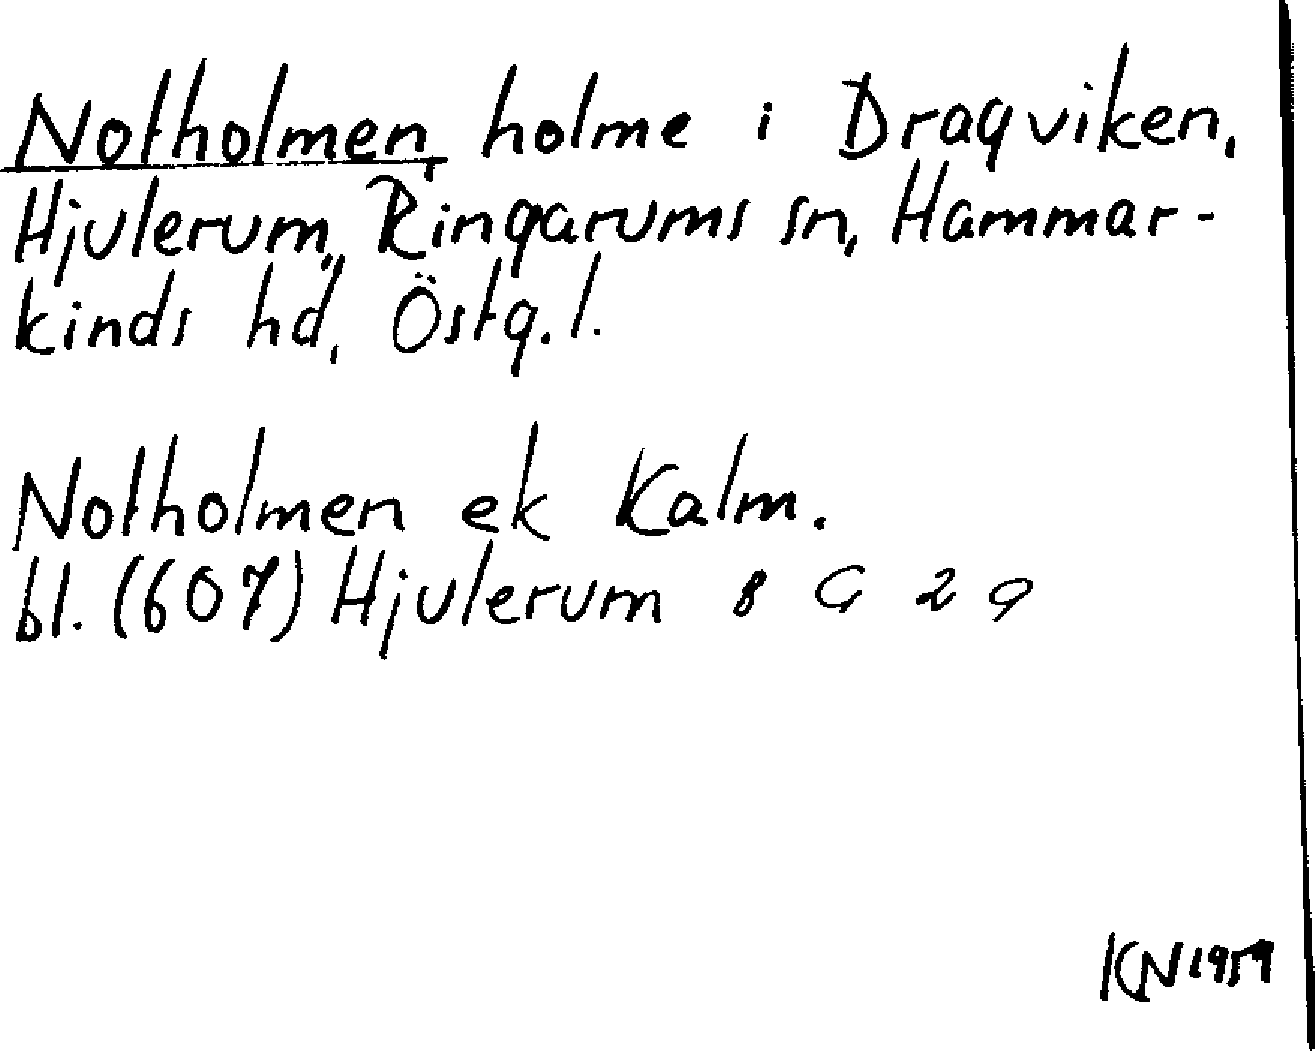 Notholmen, holme i Dragviken,
Hjulerum, Ringarums sn, Hammar-
kinds hd, Östg. l.
Notholmen ek Kalm.
bl. (607) Hjulerum 8 G 2 g
KN 1959